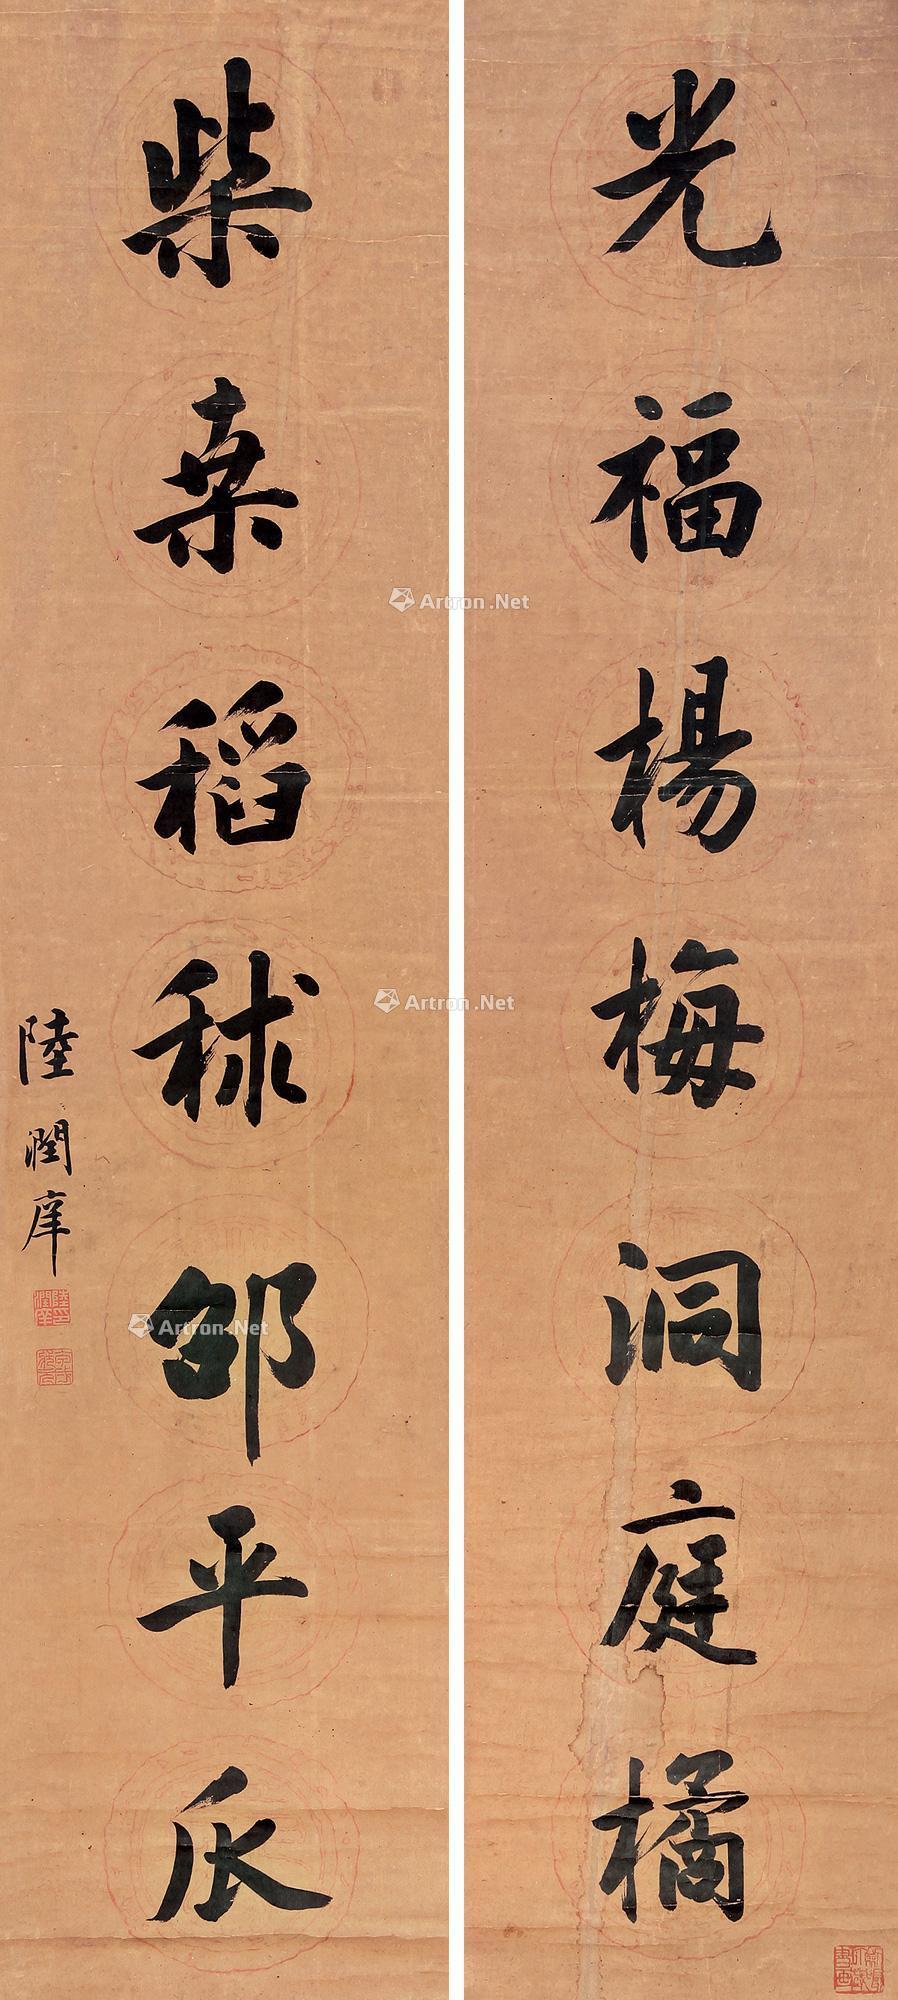 光福楊梅洞庭橘
柴桑稻秫邵平瓜
陸潤庠
陸印潤庠
Artron.Net
Artron.Net
Artron.Net